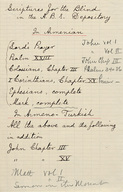 Scriptures for the Blind
in the A.B.S. Depository
In Armenian
Lord's Prayer
Psalm XXIII
St John's, Chapter III
I Corinthians, Chapter XV
Ephesians, complete
Mark, complete
In Armeno-Turkish
All the above and the following
in addition
John Chapter III
" " XV
John vol I
" Vol II
Matt vol I
" " II
Sermon on the Mount